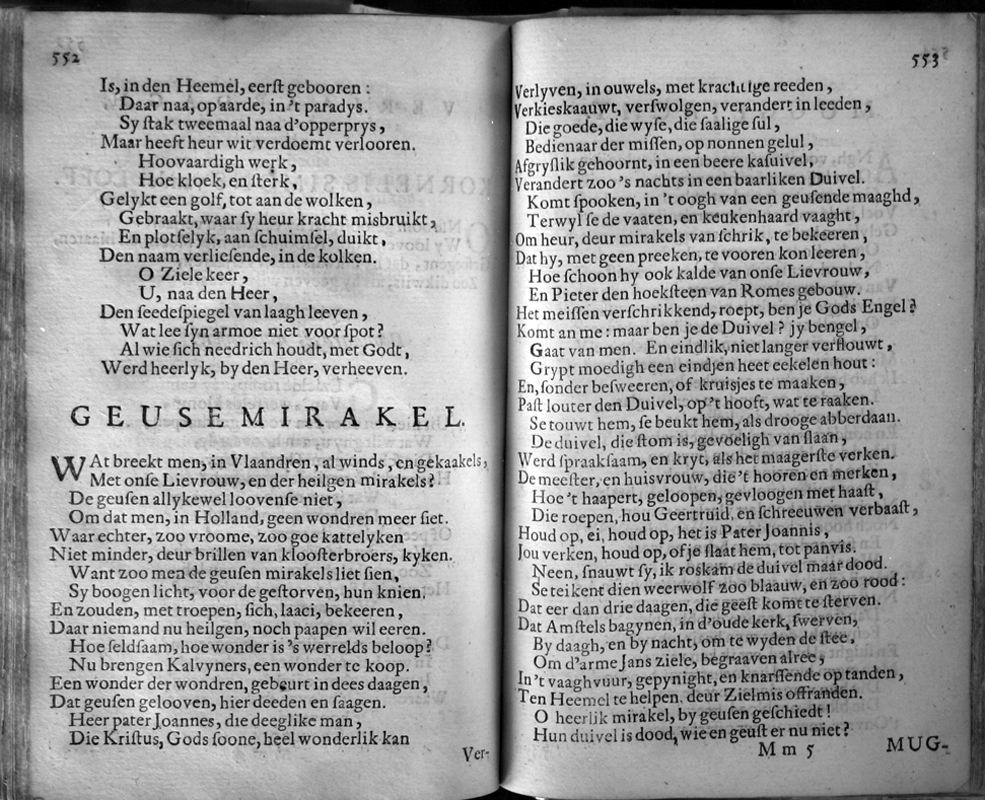 552
Is, in den Heemel, eerſt gebooren:
Daar naa, op aarde, in 't paradys.
Sy ſtak tweemaal naa d'opperprys,
Maar heeft heur wit verdoemt verlooren.
Hoovaardigh werk,
Hoe kloek, en ſterk,
Gelykt een golf, tot aan de wolken,
Gebraakt, waar ſy heur kracht misbruikt,
En plotſelyk, aan ſchuimſel, duikt,
Den naam verlieſende, in de kolken.
O Ziele keer,
U, naa den Heer,
Den ſeedeſpiegel van laagh leeven,
Wat lee ſyn armoe niet voor ſpot?
Al wie ſich needrich houdt, met Godt,
Werd heerlyk, by den Heer, verheeven.
GEUSEMIRAKEL.
WAt breekt men, in Vlaandren, al winds, en gekaakels,
Met onſe Lievrouw, en der heilgen mirakels?
De geuſen allykewel loovenſe niet,
Om dat men, in Holland, geen wondren meer ſiet.
Waar echter, zoo vroome, zoo goe kattelyken
Niet minder, deur brillen van klooſterbroers, kyken.
Want zoo men de geuſen mirakels liet ſien,
Sy boogen licht, voor de geſtorven, hun knien.
En zouden, met troepen, ſich, laaci, bekeeren,
Daar niemand nu heilgen, noch paapen wil eeren.
Hoe ſeldſaam, hoe wonder is 's werrelds beloop?
Nu brengen Kalvyners, een wonder te koop.
Een wonder der wondren, gebeurt in dees daagen,
Dat geuſen gelooven, hier deeden en ſaagen.
Heer pater Joannes, die deeglike man,
Die Kriſtus, Gods ſoone, heel wonderlik kan
Ver-
553
Verlyven, in ouwels, met krachtige reeden,
Verkieskaauwt, verſwolgen, verandert in leeden,
Die goede, die wyſe, die ſaalige ſul,
Bedienaar der miſſen, op nonnen gelul,
Afgryſlik gehoornt, in een beere kaſuivel,
Verandert zoo 's nachts in een baarliken Duivel.
Komt ſpooken, in 't oogh van een geuſende maaghd,
Terwyl ſe de vaaten, en keukenhaard vaaght,
Om heur, deur mirakels van ſchrik, te bekeeren,
Dat hy, met geen preeken, te vooren kon leeren,
Hoe ſchoon hy ook kalde van onſe Lievrouw,
En Pieter den hoekſteen van Romes gebouw.
Het meiſſen verſchrikkend, roept, ben je Gods Engel?
Komt an me: maar ben je de Duivel? jy bengel,
Gaat van men. En eindlik, niet langer verflouwt,
Grypt moedigh een eindjen heet eekelen hout:
En, ſonder beſweeren, of kruisjes te maaken,
Paſt louter den Duivel, op 't hooft, wat te raaken.
Se touwt hem, ſe beukt hem, als drooge abberdaan.
De duivel, die ſtom is, gevoeligh van ſlaan,
Werd ſpraakſaam, en kryt, als het maagerſte verken.
De meeſter, en huisvrouw, die 't hooren en merken,
Hoe 't haapert, geloopen, gevloogen met haaſt,
Die roepen, hou Geertruid, en ſchreeuwen verbaaſt,
Houd op, ei, houd op, het is Pater Joannis,
Jou verken, houd op, of je ſlaat hem, tot panvis.
Neen, ſnauwt ſy, ik roskam de duivel maar dood.
Se teikent dien weerwolf zoo blaauw, en zoo rood:
Dat eer dan drie daagen, die geeſt komt te ſterven.
Dat Amſtels bagynen, in d'oude kerk, ſwerven,
By daagh, en by nacht, om te wyden de ſtee,
Om d'arme Jans ziele, begraaven alree,
In 't vaaghvuur, gepynight, en knarſſende op tanden,
Ten Heemel te helpen, deur Zielmis offranden.
O heerlik mirakel, by geuſen geſchiedt!
Hun duivel is dood, wie en geuſt er nu niet?
Mm 5
MUG-